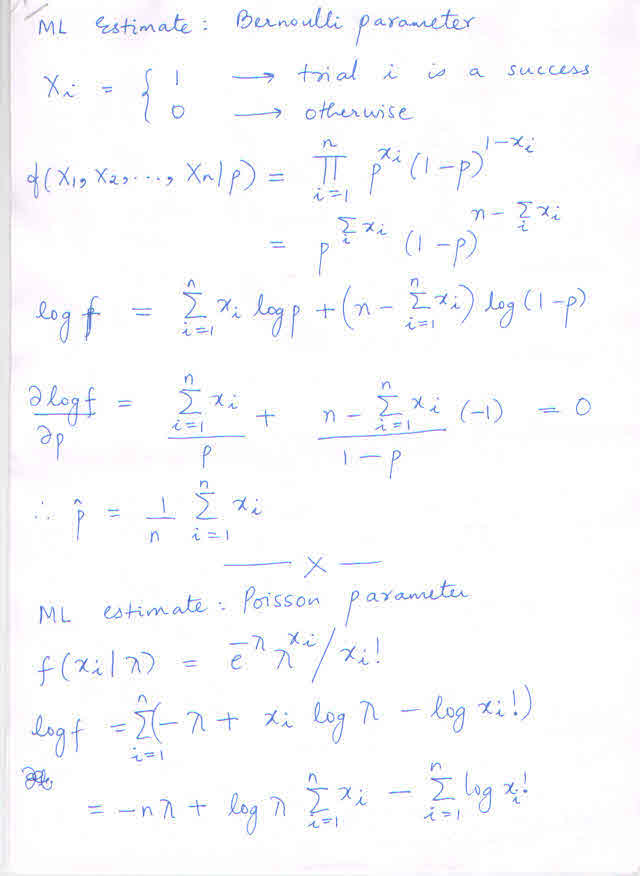 ML Estimate: Bernoulli parameter
Xi = { 1 → trial i is a success
0 → otherwise
f(X1, X2, ..., Xn|p) = ∏_{i=1}^{n} p^{xi} (1-p)^{1-xi}
= p^{∑_i xi} (1-p)^{n - ∑_i xi}
log f = ∑_{i=1}^{n} xi log p + (n - ∑_{i=1}^{n} xi) log (1-p)
∂log f/∂p = (∑_{i=1}^{n} xi)/p + (n - ∑_{i=1}^{n} xi)/(1-p) (-1) = 0
∴ p̂ = 1/n ∑_{i=1}^{n} xi
— X —
ML estimate: Poisson parameter
f(xi|λ) = e^{-λ} λ^{xi}/xi!
log f = ∑_{i=1}^{n} (-λ + xi log λ - log xi!)
= -nλ + log λ ∑_{i=1}^{n} xi - ∑_{i=1}^{n} log xi!